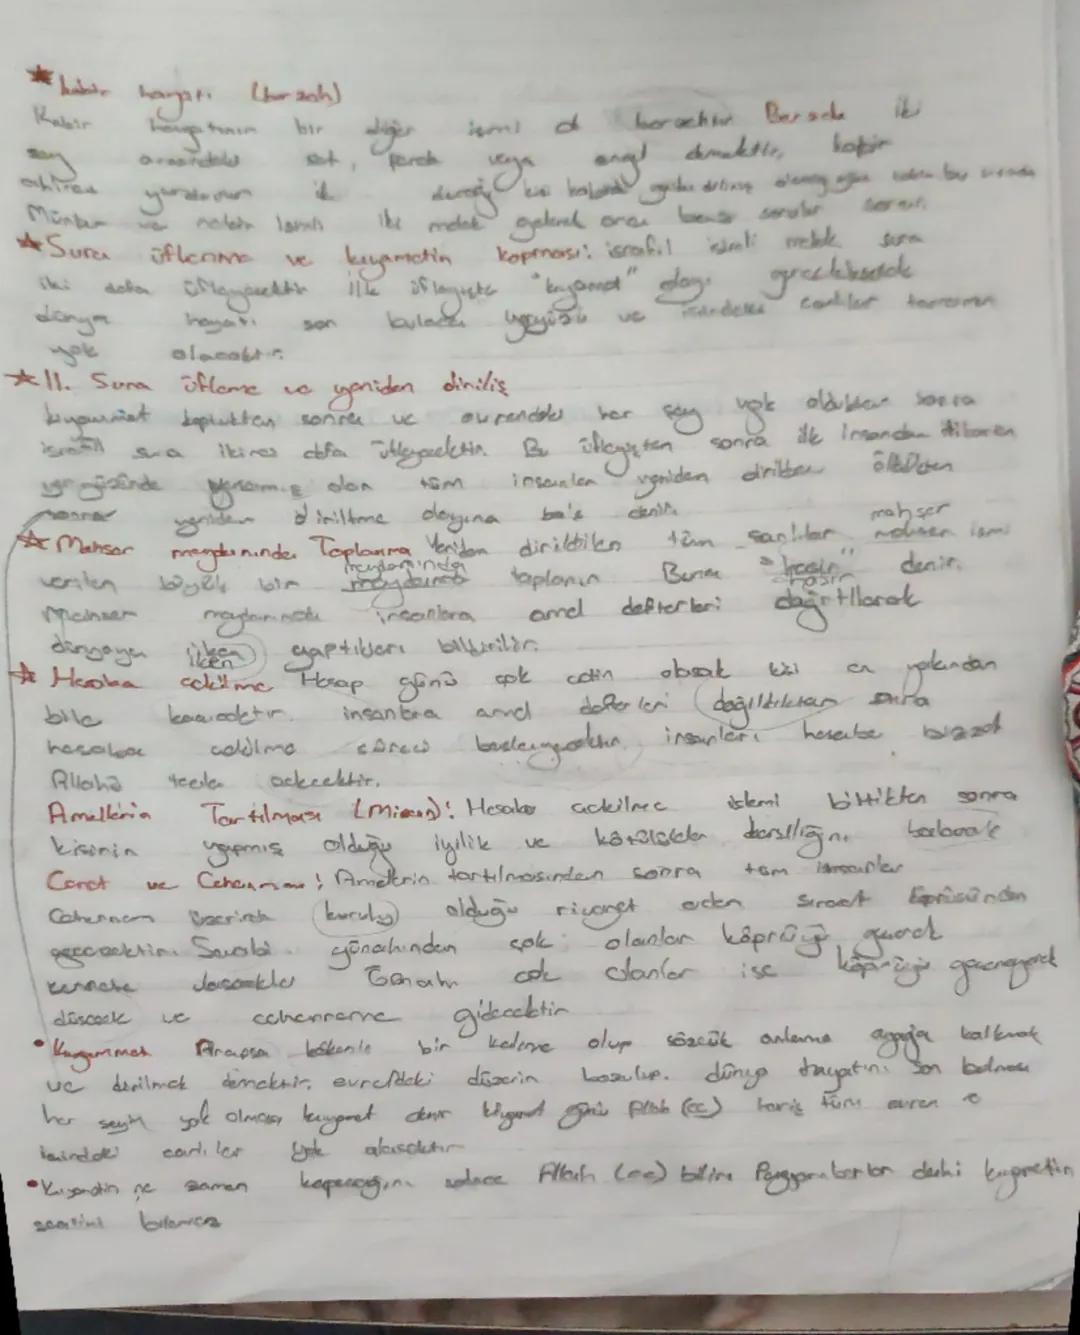 ★ kabir hayatı (berzah)
Kabir hayatının bir diğer ismi d berzahtır Berzah iki
şey arasındaki set, perde veya engel demektir, kabir
ahiret
Münker ve nekir isimli iki melek gelerek ona bazı sorular sorar.
★ Sura üflenme ve kıyametin kopması: israfil isimli melek sura
iki defa üfleyecektir ilk üfleyişte "kıyamet" olayı gerçekleşecek
dünya hayatı son bulacak yeryüzü ve içindeki canlılar tamamen
yok olacaktır.
★ II. Sura üfleme ve yeniden diriliş
kıyamet koptuktan sonra ve evrendeki her şey yok olduktan sonra
israfil sura ikinci defa üfleyecektir. Bu üfleyişten sonra ilk insandan itibaren
yeryüzünde yaşamış olan tüm insanlar yeniden dirilecek öldükten
sonra yeniden diriltme olayına ba's denir. mahşer
★ Mahşer meydanında Toplanma Yeniden dirildikten tüm canlılar mahşer ismi
verilen büyük bir meydanında toplanır Buna "haşir" denir.
Mahşer meydanında insanlara amel defterleri dağıtılarak
dünyaya iken yaptıkları bildirilir.
★ Hesaba çekilme Hesap günü çok çetin olacak kişi en yakından
bile kaçacaktır. insanlara amel defterleri dağıldıktan sonra
hesaba çekilme süreci başlayacaktır. insanları hesaba bizzat
Allahü teala çekecektir.
Amellerin Tartılması (Mizan): Hesaba çekilme işlemi bittikten sonra
kişinin yapmış olduğu iyilik ve kötülükler karşılığını bulacak
Cennet ve Cehennem: Amellerin tartılmasından sonra tüm insanlar
Cehennem üzerinde kurulu olduğu rivayet eden Sırat köprüsünden
geçecektir. Sevabı günahından çok olanlar köprüyü geçerek
cennete Günahı çok olanlar ise köprüyü geçemeyerek
düşecek ve cehenneme gidecektir
• Kıyamet Arapça kökenli bir kelime olup sözcük anlamı ayağa kalkmak
ve dirilmek demektir. evrendeki düzenin bozulup. dünya hayatını son bulması
her şeyin yok olması kıyamet denir kıyamet günü Allah (cc) hariç tüm evren e
içindeki canlılar yok olacaktır
• Kıyametin ne zaman kopacağını sadece Allah (cc) bilir. Peygamberler dahi kıyametin
saatini bilemez